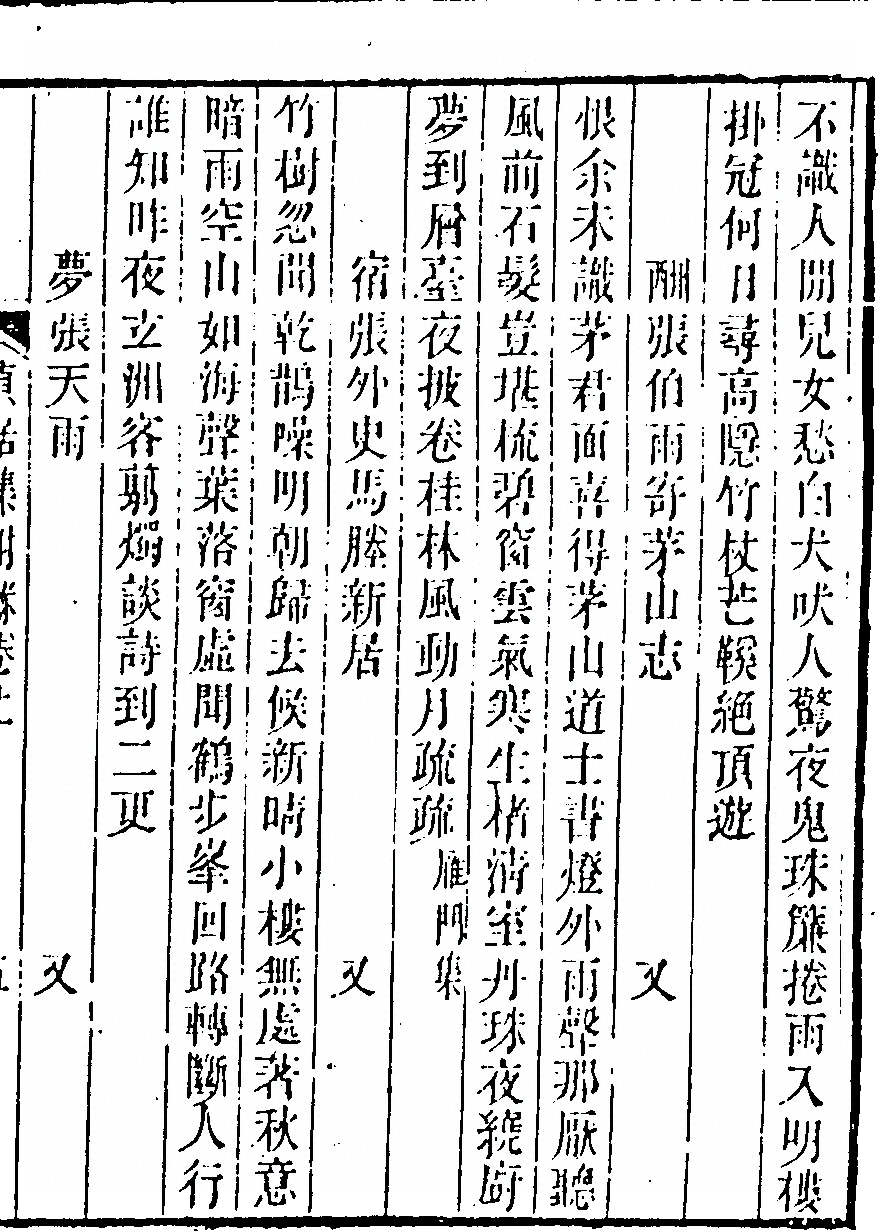 不識人間兒女愁白犬吠人驚夜鬼珠簾捲雨入明樓
掛冠何日尋高隱竹杖芒鞵絕頂遊
酬張伯雨寄茅山志 又
恨余未識茅君面喜得茅山道士書燈外雨聲那厭聽
風前石髮豈堪梳碧窗雲氣寒生楮清室丹珠夜繞廚
夢到層臺夜披卷桂林風動月疏疏 雁門集
宿張外史馬塍新居 又
竹樹忽聞乾鵲噪明朝歸去候新晴小樓無處著秋意
暗雨空山如海聲葉落窗虛聞鶴步峯回路轉斷人行
誰知昨夜立洲客剪燭談詩到二更
夢張天雨 又
貞居集附錄卷上 五